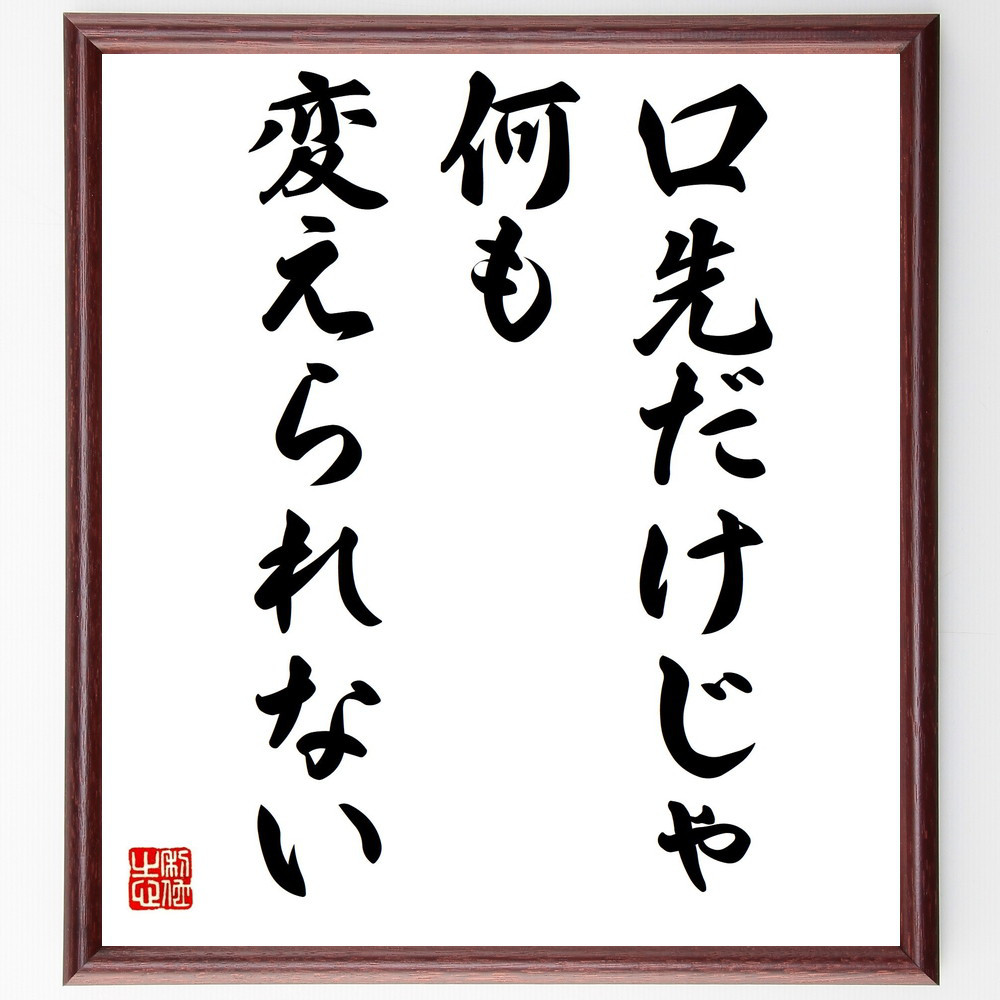 口先だけじゃ
何も
変えられない